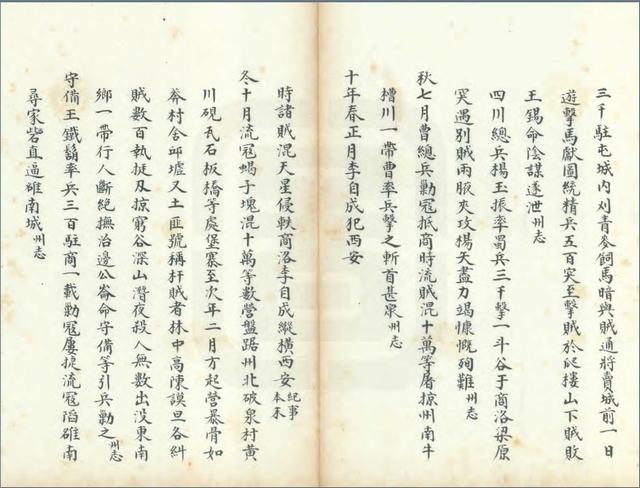 三千駐屯城内刈青麥飼馬暗與賊通將賣城前一日
遊擊馬獻圖統精兵五百突至擊賊於爬樓山下賊敗
王錫命陰謀遂泄州志
四川總兵楊玉振率蜀兵三千擊一斗谷于商洛梁原
突遇别賊兩腋夾攻楊天盡力竭慷慨殉難州志
秋七月曹總兵勦寇抵商時流賊混十萬等屠掠州南牛
槽川一帶曹率兵擊之斬首甚衆州志
十年春正月李自成犯西安
時諸賊混天星侵軼商洛李自成縱橫西安紀事本末
冬十月流寇蝎子塊混十萬等數營盤踞州北破泉村黄
川硯瓦石板橋等處堡寨至次年二月方起營暴骨如
莽村舍邱墟又土匪號稱杆賊者林中高陳謨旦各糾
賊數百執挺及掠窮谷深山潛夜殺人無數出没東南
鄉一帶行人斷絶撫治邊公崙命守備等引兵勦之州志
守備王鐵鬍率兵三百駐商一載勦寇屢捷流寇滔雒南
尋家砦直逼雒南城州志